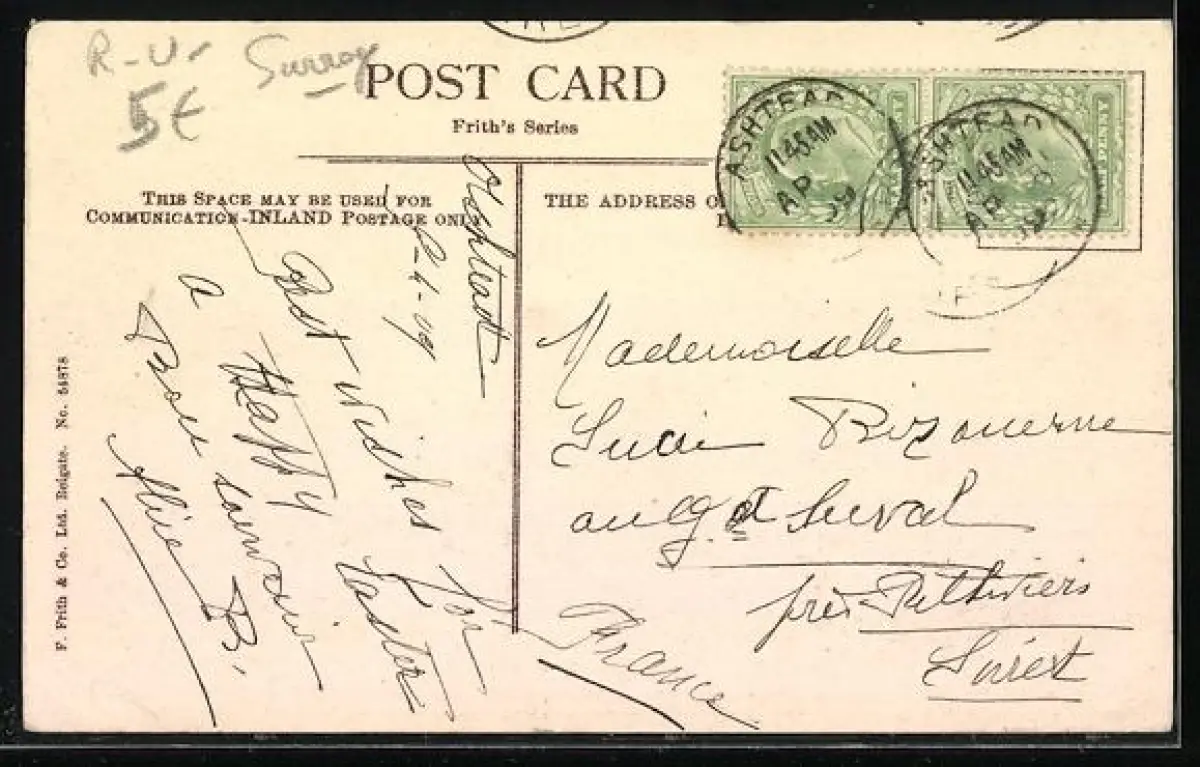 R-U-
Surrey
5€
POST CARD
Frith's Series
THIS SPACE MAY BE USED FOR
COMMUNICATION-INLAND POSTAGE ONLY
THE ADDRESS O
ASHTEAD
11.45AM
AP
09
ASHTEAD
11.45AM
AP 8
09
PENNY
Ashtead
8-4-09
Best wishes for
a Happy Easter
Bon souvenir
Alice B.
Mademoiselle
Lucie
au gd
près Pithiviers
Loiret
France
F. Frith & Co. Ltd. Reigate. No. 54878